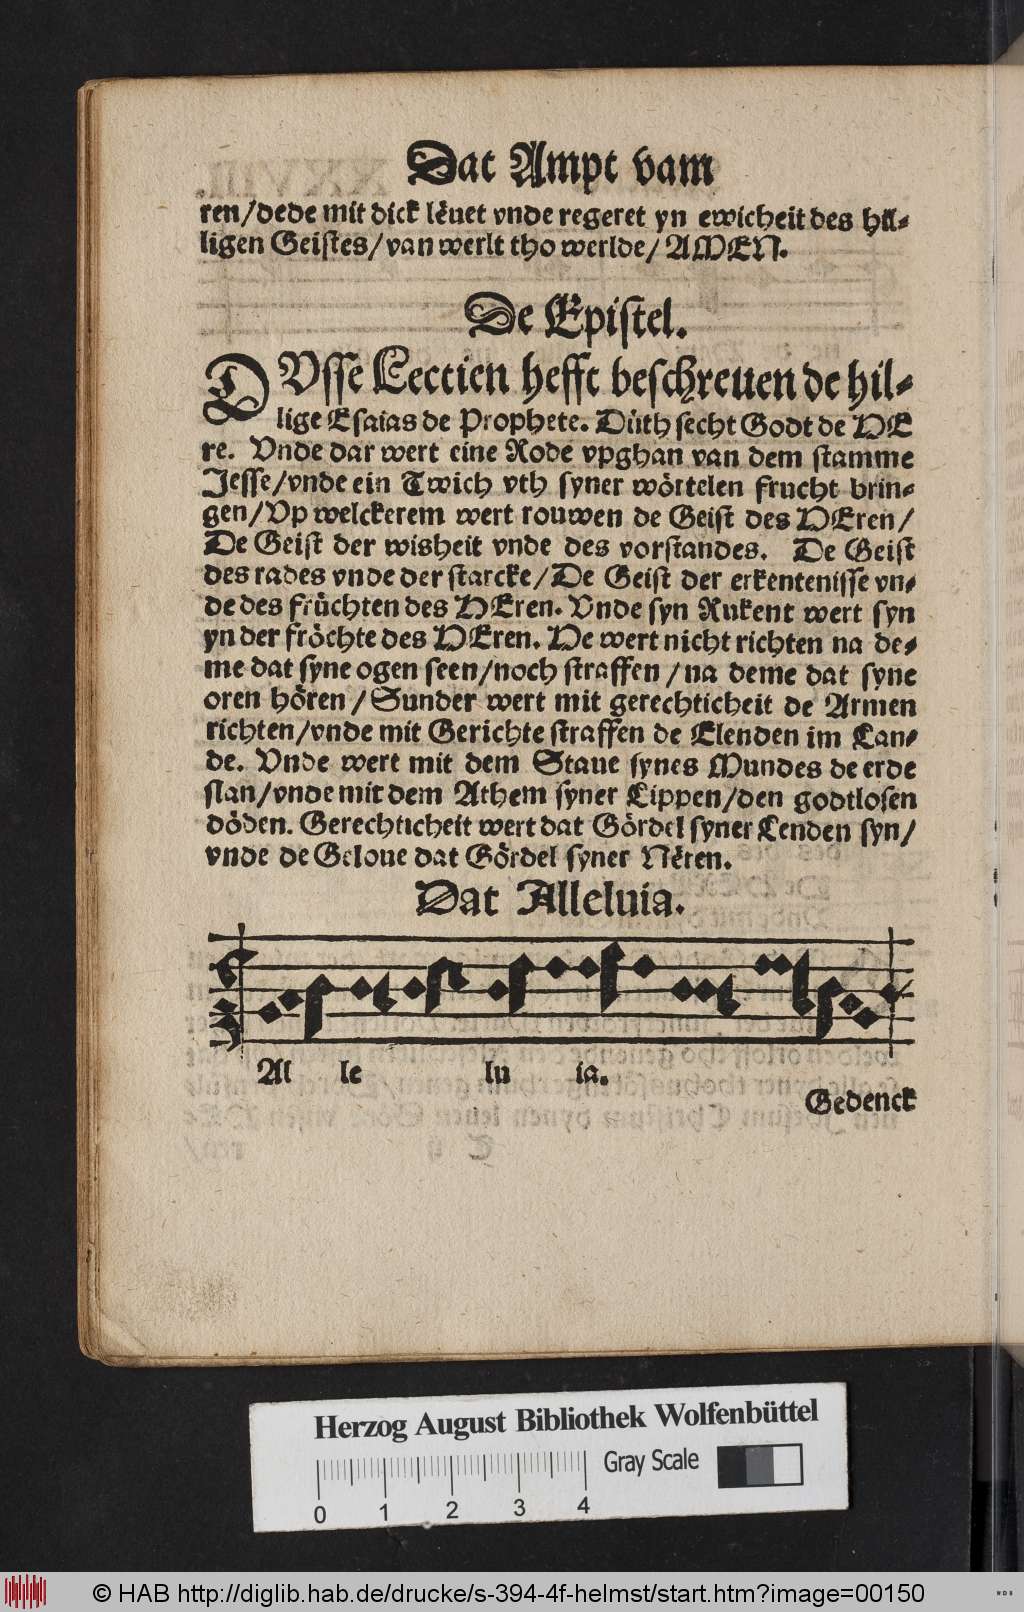 Dat Ampt vam
ren/dede mit dick lëuet vnde regeret yn ewicheit des hil⸗
ligen Geistes/van werlt tho werlde/AMEN.
De Epistel.
DVsse Lectien hefft beschreuen de hil⸗
lige Esaias de Prophete. Düth secht Godt de HE
re. Vnde dar wert eine Rode vpghan van dem stamme
Jesse/vnde ein Twich vth syner wörtelen frucht brin⸗
gen/Vp welckerem wert rouwen de Geist des HEren/
De Geist der wisheit vnde des vorstandes. De Geist
des rades vnde der starcke/De Geist der erkentenisse vn⸗
de des früchten des HEren. Vnde syn Rukent wert syn
yn der fröchte des HEren. He wert nicht richten na de⸗
me dat syne ogen seen/noch straffen/na deme dat syne
oren hören/Sunder wert mit gerechticheit de Armen
richten/vnde mit Gerichte straffen de Elenden im Lan⸗
de. Vnde wert mit dem Staue synes Mundes de erde
slan/vnde mit dem Athem syner Lippen/den godtlosen
döden. Gerechticheit wert dat Gördel syner Lenden syn/
vnde de Geloue dat Gördel syner Nëren.
Dat Alleluia.
Al le lu ia.
Gedenck
Herzog August Bibliothek Wolfenbüttel
Gray Scale
0 1 2 3 4
© HAB http://diglib.hab.de/drucke/s-394-4f-helmst/start.htm?image=00150